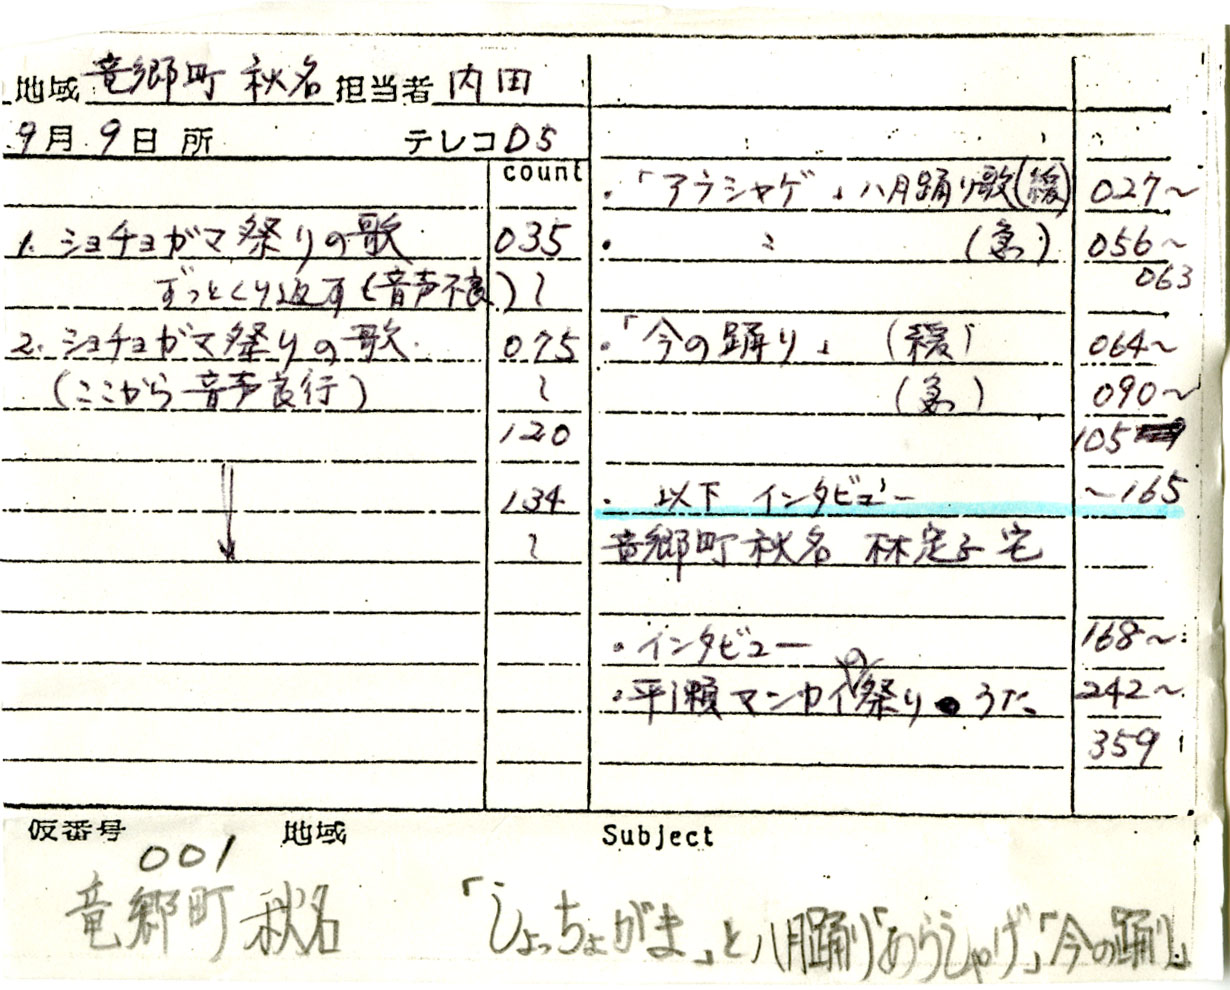 地域 竜郷町 秋名 担当者 内田
9月 9日 所 テレコ D5
count
1. ショチョガマ祭りの歌 035
ずっとくり返す(音声不良) 〜
2. ショチョガマ祭りの歌. 075
(ここから 音声良行) 〜
120
134
〜
・「アラシャゲ」八月踊り歌(緩) 027〜
・ 〃 (急) 056〜
063
・「今の踊り」 (緩) 064〜
(急) 090〜
105
・ 以下 インタビュー 〜165
竜郷町 秋名 林定子宅
・インタビュー 168〜
・平瀬マンカイの祭り うた 242〜
359
仮番号 地域 Subject
001
竜郷町 秋名 「しょっちょがま」と八月踊り「あらしゃげ」「今の踊り」